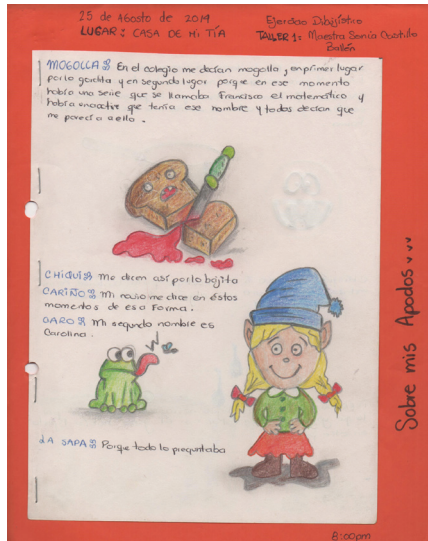 25 de Agosto de 2019
LUGAR: CASA DE MI TÍA
Ejercicio Dibujístico
TALLER 1: Maestra Sonia Castillo
Ballén
MOGOLLA: En el colegio me decían mogolla, en primer lugar
por lo gordita y en segundo lugar porque en ese momento
había una serie que se llamaba Francisco el matemático y
había una actriz que tenía ese nombre y todos decían que
me parecía a ella.
CHIQUI: Me dicen así por lo bajita
CARIÑO: Mi novio me dice en éstos
momentos de esa forma.
CARO: Mi segundo nombre es
Carolina.
LA SAPA: Porque todo lo preguntaba
Sobre mis Apodos...
8:00pm